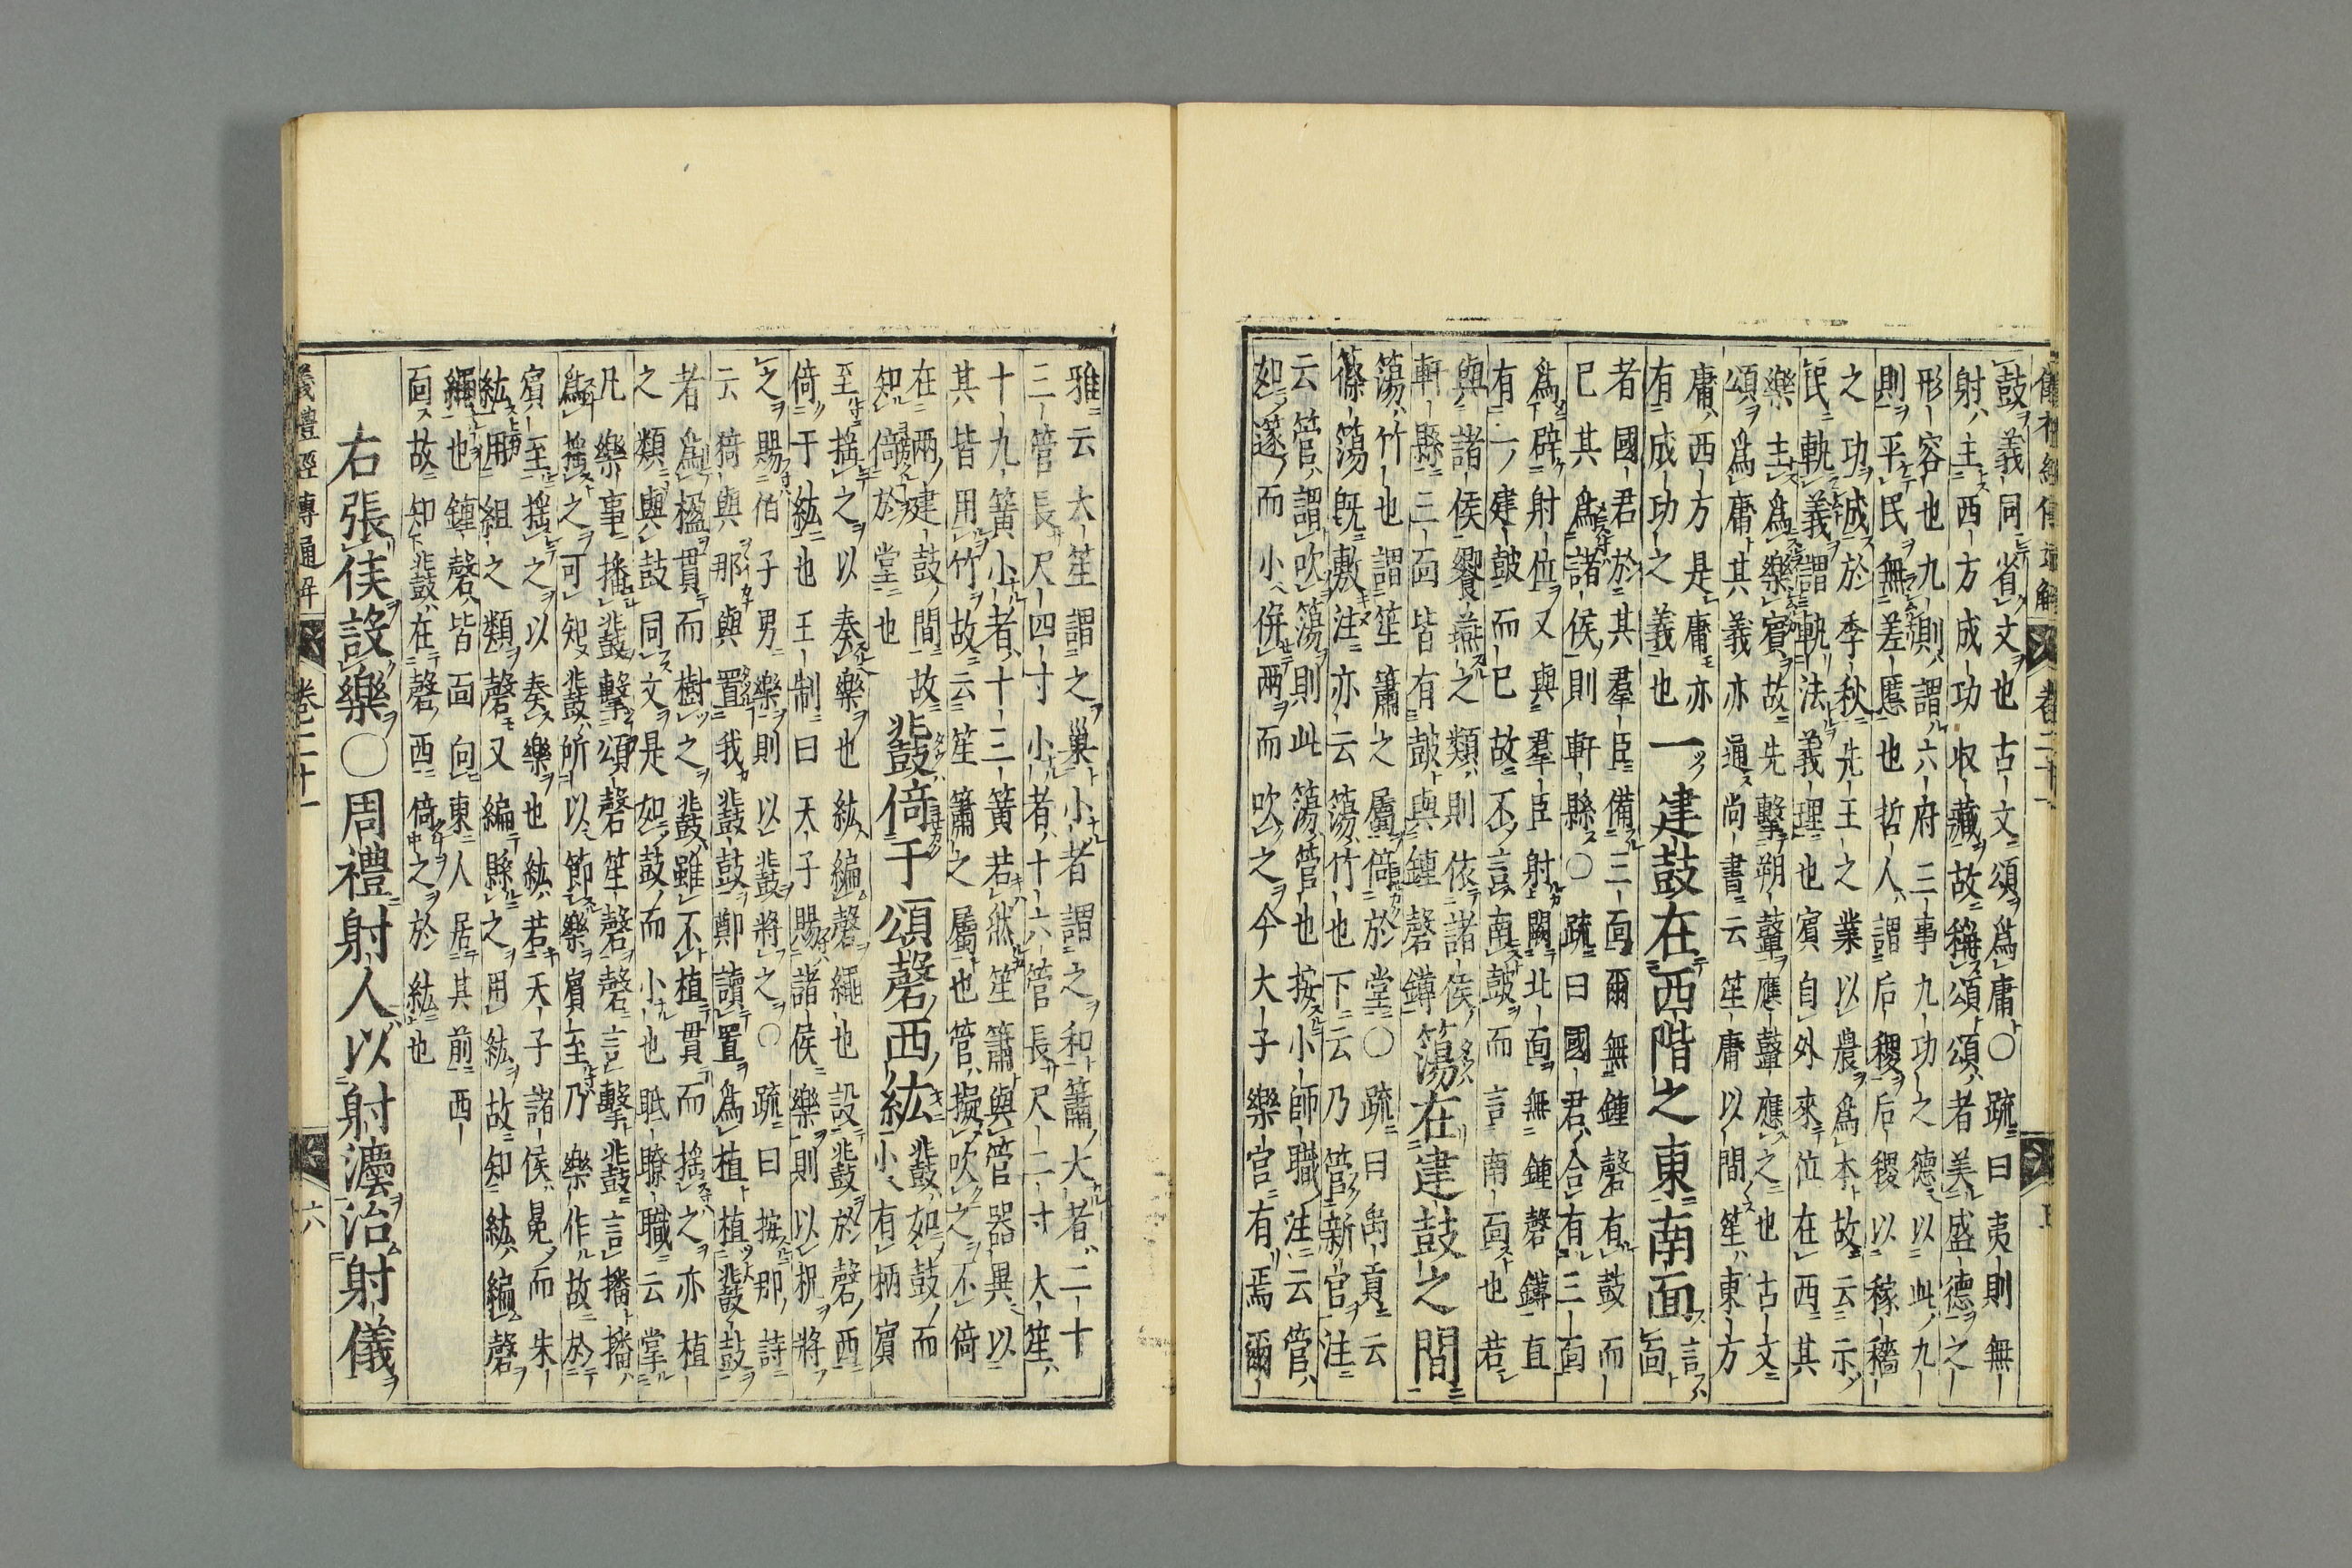 儀禮經傳通解　卷二十一　五
鼓義同省文也古文頌爲庸○疏曰夷則無
射主西方成功収藏故稱頌頌者美盛德之
形容也九則謂六府三事九功之德以此九
則平民無差慝也哲人謂后稷后稷以稼穡
之功成於季秋先王之業以農爲本故云示
民軌義謂軌法義理也賓自外來位在西其
樂主爲樂賓故先擊朔鼙應鼙應之也古文
頌爲庸其義亦通尚書云笙庸以間笙東方
庸西方是庸亦
有成功之義也
一建鼓在西階之東南面
言
面
者國君於其羣臣備三面爾無鐘磬有鼓而
已其爲諸侯則軒縣○疏曰國君合有三面
爲辟射位又與羣臣射闕北面無鐘磬鎛直
有一建鼓而已故不言南鼓而言南面也若
與諸侯饗燕之類則依諸侯
軒縣三面皆有鼓與鐘磬鎛
簜在建鼓之間
簜竹也謂笙簫之屬倚於堂○疏曰禹貢云
篠簜既敷注亦云簜竹也下云乃管新宮注
云管謂吹簜則此簜管也按小師職注云管
如篴而小併兩而吹之今大子樂官有焉爾
雅云大笙謂之巢小者謂之和簫大者二十
三管長尺四寸小者十六管長尺二寸大笙
十九簧小者十三簧若然笙簫與管器異以
其皆用竹故云笙簫之屬也管損吹之不倚
在兩建鼓間故
知倚於堂也
鼗倚于頌磬西紘
鼗如鼓而
小有柄賓
至搖之以奏樂也紘編磬繩也設鼗於磬西
倚于紘也王制曰天子賜諸侯樂則以柷將
之賜伯子男樂則以鼗將之○疏曰按那詩
云猗與那與置我鼗鼓鄭讀置爲植植鼗鼓
者爲楹貫而樹之鼗雖不植貫而搖之亦植
之類與鼓同文是如鼓而小也眡瞭職云掌
凡樂事播鼗擊頌磬笙磬磬言擊鼗言播播
爲搖之可知鼗所以節樂賓至乃樂作故於
賓至搖之以奏樂也紘若天子諸侯冕而朱
紘用組之類磬又編縣之用紘故知紘編磬
繩也鐘磬皆面向東人居其前西
面故知鼗在磬西倚之於紘也
右張侯設樂○周禮射人以射灋治射儀
儀禮經傳通解　卷二十一　六